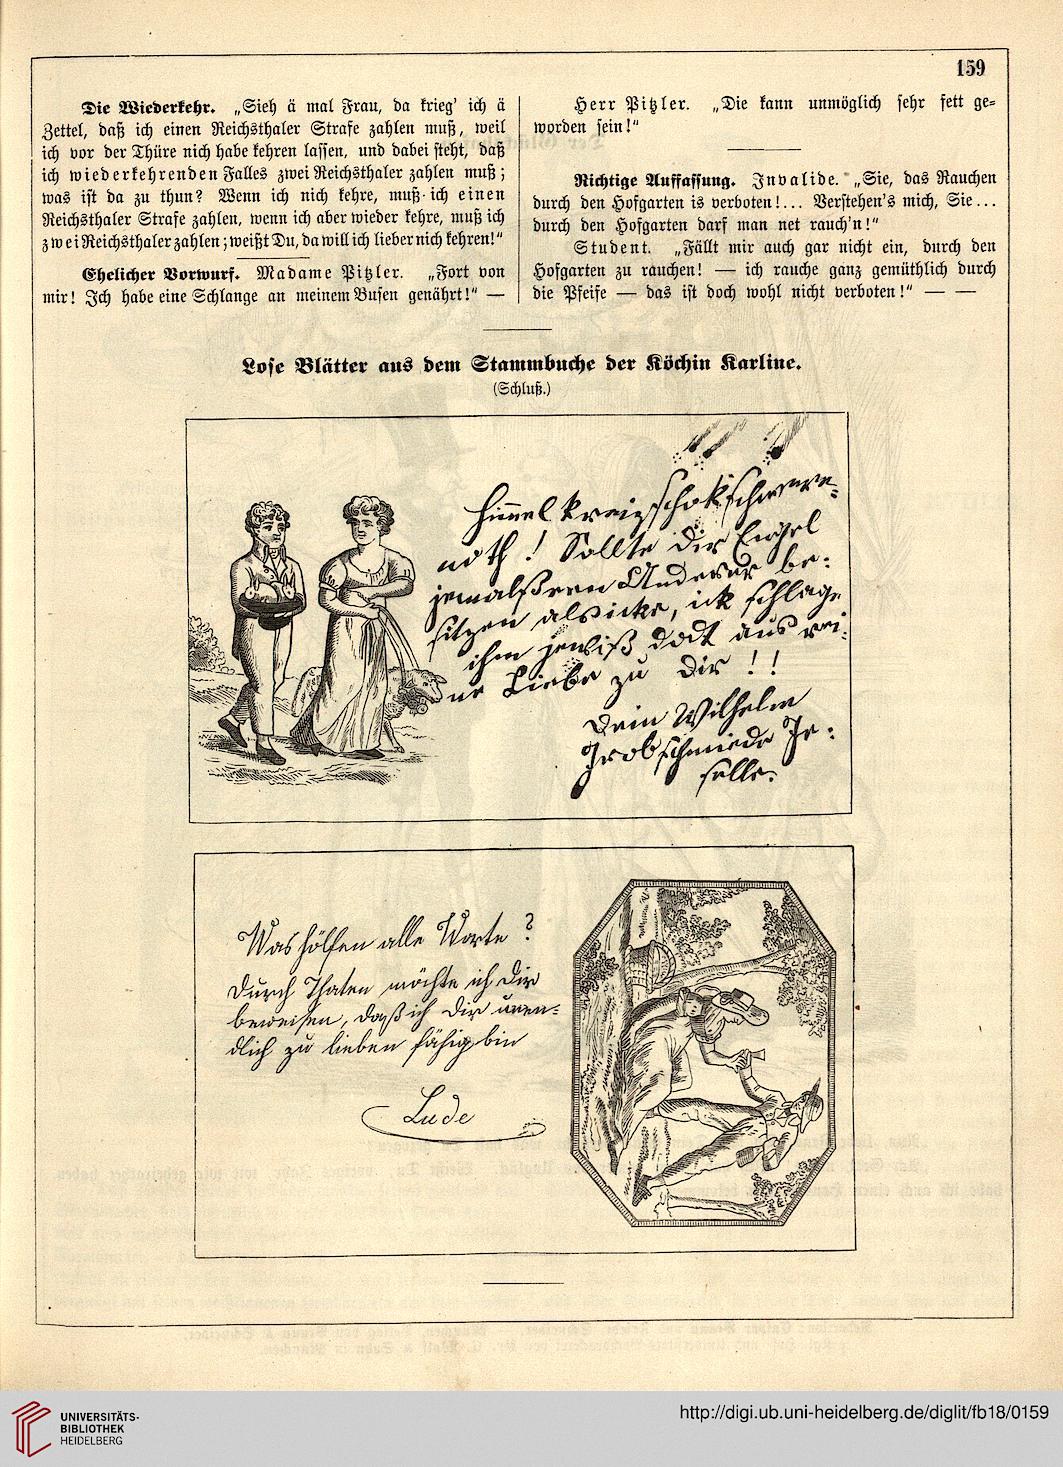 159
Die Wiederkehr. „Sieh ä mal Frau, da krieg' ich ä
Zettel, daß ich einen Reichsthaler Strafe zahlen muß, weil
ich vor der Thüre nich habe kehren lassen, und dabei steht, daß
ich wiederkehrenden Falles zwei Reichsthaler zahlen muß;
was ist da zu thun? Wenn ich nich kehre, muß ich einen
Reichsthaler Strafe zahlen, wenn ich aber wieder kehre, muß ich
zwei Reichsthaler zahlen; weißt Du, da will ich lieber nich kehren!"
Ehelicher Vorwurf. Madame Pitzler. „Fort von
mir! Ich habe eine Schlange an meinem Busen genährt!" —
Herr Pitzler. „Die kann unmöglich sehr fett ge=
worden sein!"
Richtige Auffassung. Invalide. „Sie, das Rauchen
durch den Hofgarten is verboten!... Verstehen's mich, Sie...
durch den Hofgarten darf man net rauch'n!"
Student. „Fällt mir auch gar nicht ein, durch den
Hofgarten zu rauchen! — ich rauche ganz gemüthlich durch
die Pfeife — das ist doch wohl nicht verboten!" — —
Lose Blätter aus dem Stammbuche der Köchin Karline.
(Schluß.)
Himmelkreizschokschwere=
noth! Sollte dir Engel
jemalßeen Anderer be=
sitzen als icke, ick schlage
ihm jewiß dodt aus rei=
ne Liebe zu Dir!!
Dein Wilhelm
Jrobschmiede Je=
selle.
Was hölfen alle Worte?
Durch Thaten möchte ich Dir
beweisen, daß ich Dir unen=
dlich zu lieben fähig bin
Lude
UNIVERSITÄTS-
BIBLIOTHEK
HEIDELBERG
http://digi.ub.uni-heidelberg.de/diglit/fb18/0159